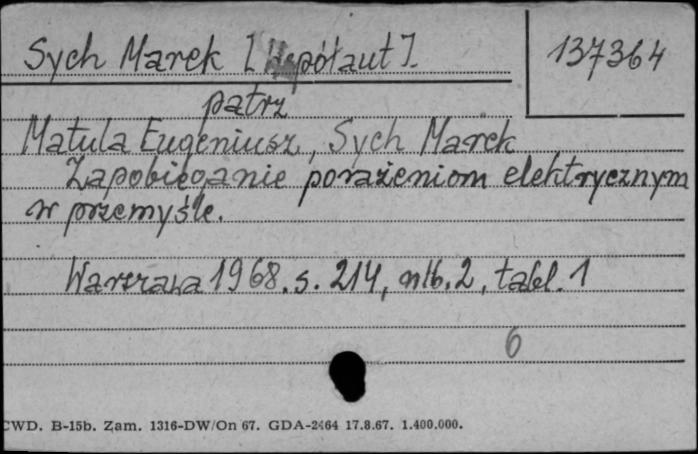 Sych Marek [Współaut].
137364
patrz
Matula Eugeniusz, Sych Marek
Zapobieganie porażeniom elektrycznym
w przemyśle.
Warszawa 1968. s. 214, nlb. 2, tabl. 1
6
CWD. B-15b. Zam. 1316-DW/On 67. GDA-2464 17.8.67. 1.400.000.